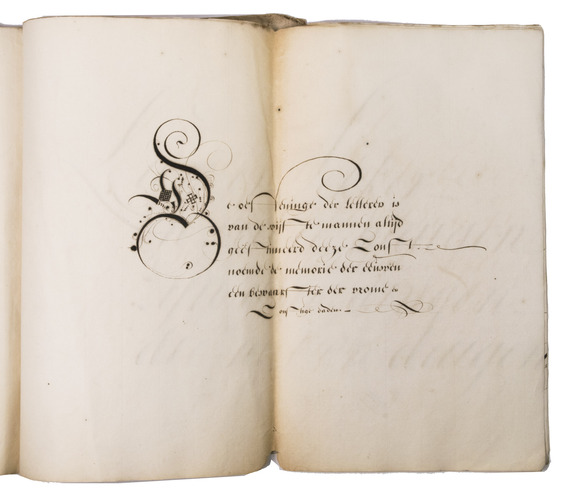 De oeffeninge der letteren is
van de wijste mannen altijd
geëstimeerd deeze Const
noemde de memorie der eeuwen
een bewaarster der vrome &
Constige daden.